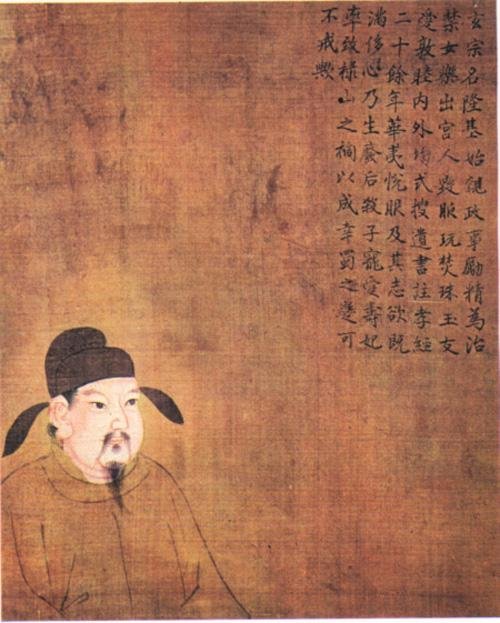 玄宗名隆基始親政事勵精為治
禁女樂出宮人毀服玩焚珠玉友
愛敦睦內外均式搜遺書註孝經
二十餘年華夷悅服及其志欲既
滿侈心乃生廢后殺子寵愛壽妃
率致祿山之禍以成幸蜀之憂可
不戒歟